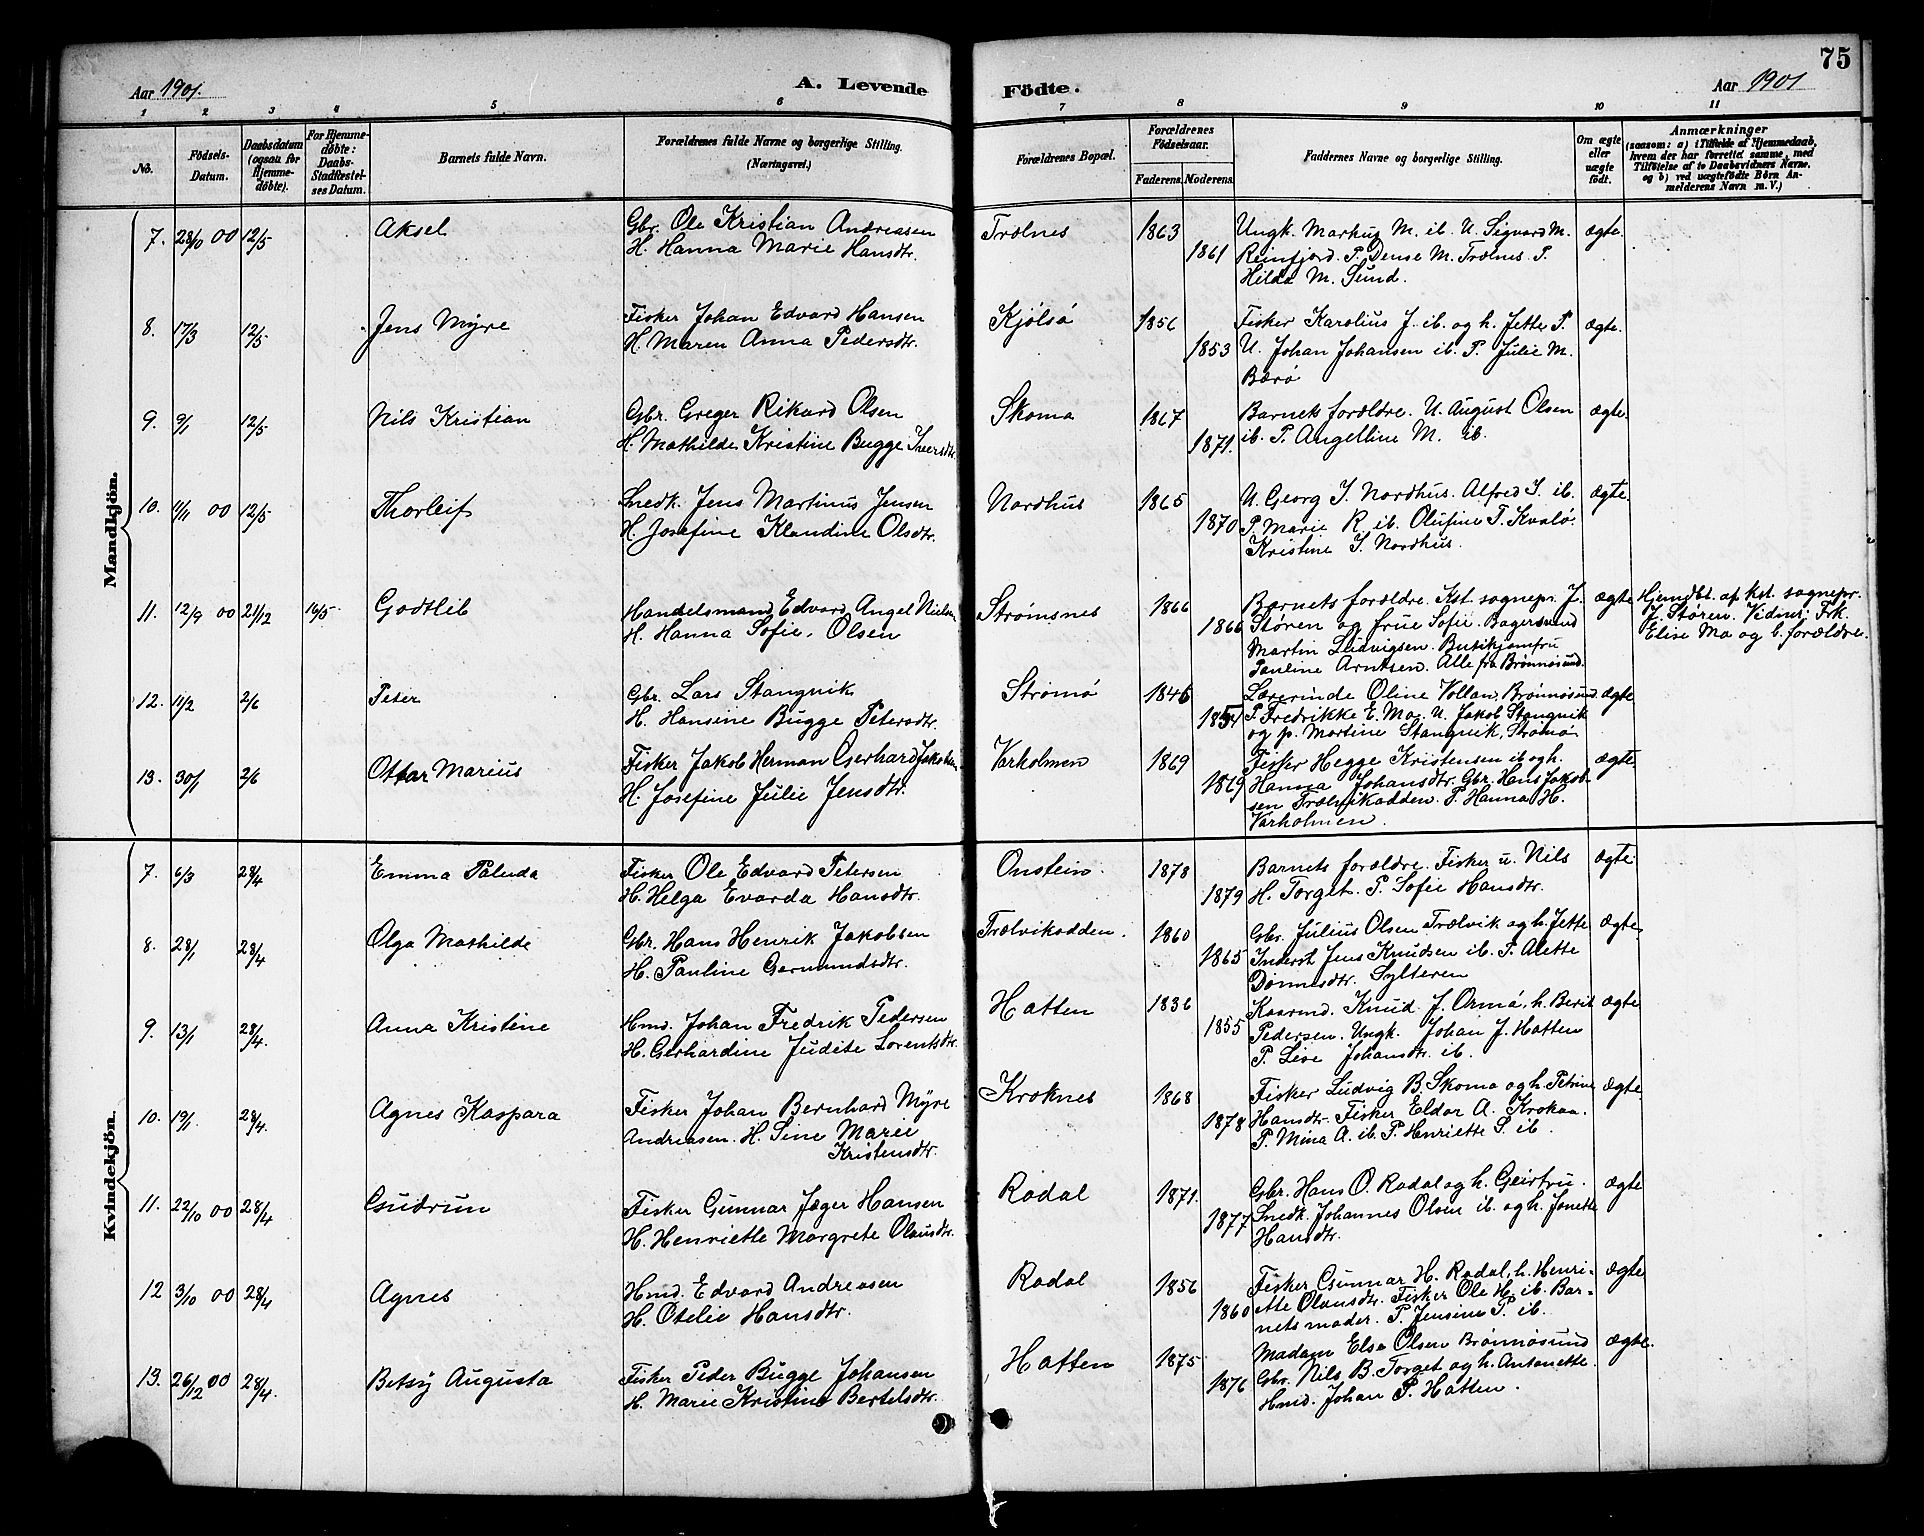 75
Aar 1901. A. Levende Födte. Aar 1901
1 2 3 4 5 6 7 8 9 10 11
No. Födsels-Datum. Daabsdatum (ogsaa for Hjemmedøbte). For Hjemmedøbte: Daabs-Stadfæstelses Datum. Barnets fulde Navn. Forældrenes fulde Navne og borgerlige Stilling. (Næringsvei.) Forældrenes Bopæl. Forældrenes Födselsaar. Faderens. Moderens. Faddernes Navne og borgerlige Stilling. Om ægte eller uægte födt. Anmærkninger (saasom: a) i Tilfælde af Hjemmedaab, hvem der har forrettet samme, med Tilföielse af to Daabsvidners Navne, og b) ved uægtefödte Börn Anmelderens Navn m. V.)
Mandkjön.
7. 28/10 00 12/5 Aksel Gbr. Ole Kristian Andreasen Trælnes 1863 Ungk. Markus M. ib. U. Sigvard M. ægte.
H. Hanna Marie Hansdtr. 1861 Reinfjord. P. Dense M. Trælnes. P.
Hilda M. Sund.
8. 17/3 12/5 Jens Myre Fisker Johan Edvard Hansen Kjølsø 1856 Fisker Karolius J. ib. og h. Jette P. ægte.
H. Maren Anna Pedersdtr. 1853 U. Johan Johansen ib. P. Julie M.
Bærø
9. 9/1 12/5 Nils Kristian Gbr. Greger Rikard Olsen Skoma 1867 Barnets forældre. U. August Olsen ægte.
H. Mathilde Kristine Bugge Iversdtr. 1871. ib. P. Angelline M. ib.
10. 11/11 00 12/5 Thorleif Snedk. Jens Martinus Jensen Nordhus 1865 U. Georg J. Nordhus. Alfred J. ib. ægte.
H. Josefine Klaudine Olsdtr. 1870 P. Marie R. ib. Olufine T. Kvalø.
Kristine J. Nordhus.
11. 12/9 00 21/12 16/5 Godtlib Handelsmand Edvard Angel Nielsen Strømsnes 1866 Barnets forældre. Kst. sognepr. J. ægte Hjemdbt. af kst. sognepr.
H. Hanna Sofie Olsen 1866 Støren og frue Sofie. Bagersvend J. Støren. Vidner: Frk.
Martin Ludvigsen. Butikjomfru Elise Mo og b. forældre.
Pauline Arntsen. Alle fra Brønnøsund.
12. 11/2 2/6 Peter Gbr. Lars Stangvik Strømø 1846 Lærerinde Oline Vollan, Brønnøsund ægte
H. Hansine Bugge Petersdtr. 1854 P. Fredrikke E. Mo. U. Jakob Stangvik
og p. Martine Stangvik, Strømø
13. 30/1 2/6 Ottar Marius Fisker Jakob Herman Gerhard Jakobsen Varholmen 1869 Fisker Hegge Kristensen ib og h. ægte
H. Josefine Julie Jensdtr. 1869 Hanna Johansdtr. Gbr. Hans Jakob-
sen Trælvikodden. P. Hanna H.
Varholmen.
Kvindekjön.
7. 6/3 28/4 Emma Paleuda Fisker Ole Edvard Petersen Onstein. 1878 Barnets forældre. Fisker u. Nils ægte.
H. Helga Evarda Hansdtr. 1879 H. Torget. P. Sofie Hansdtr.
8. 28/1 28/4 Olga Mathilde Gbr. Hans Henrik Jakobsen Trælvikodden. 1860 Gbr. Julius Olsen Trælvik og h. Jette ægte
H. Pauline Germundsdtr. 1865 Inderst Jens Knudsen ib. P. Alette
Dønnesdtr. Sylteren
9. 13/1 28/4. Anna Kristine Hmd. Johan Fredrik Pedersen Hatten 1836 Kaarmd. Knud J. Ormø, h. Berit ægte
H. Gerhardine Judite Lorentsdtr. 1855 Pedersen. Ungk. Johan J. Hatten
P. Lise Johansdtr. ib.
10. 19/1. 28/4. Agnes Kaspara Fisker Johan Bernhard Myre Kroknes 1868 Fisker Ludvig B. Skoma og h. Petrine ægte
Andreasen. H. Sine Marie 1878 Hansdtr. Fisker Eldor A. Krokaa.
Kristensdtr. P. Mina A. ib. P. Henriette S. ib.
11. 22/10 00 28/4 Gudrun Fisker Gunnar Jæger Hansen Rodal 1871. Gbr. Hans O. Rodal og h. Geirtru. ægte
H. Henriette Margrete Olausdtr. 1877 Snedk. Johannes Olsen ib. og h. Jonette
Hansdtr.
12 3/10 00 28/4 Agnes Hmd. Edvard Andreasen Rodal 1856 Fisker Gunnar H. Rodal, h. Henri- ægte
H. Otelie Hansdtr. 1860 ette Olausdtr. Fisker Ole H. ib. Bar-
nets moder. P. Jensine P. ib.
13. 26/12 00 28/4. Betsy Augusta Fisker Peder Bugge Johansen Hatten 1875 Madam Elsa Olsen Brønnøsund ægte.
H. Marie Kristine Bertelsdtr. 1876 Gbr. Nils B. Torget og h. Antonette
Hmd. Johan P. Hatten.